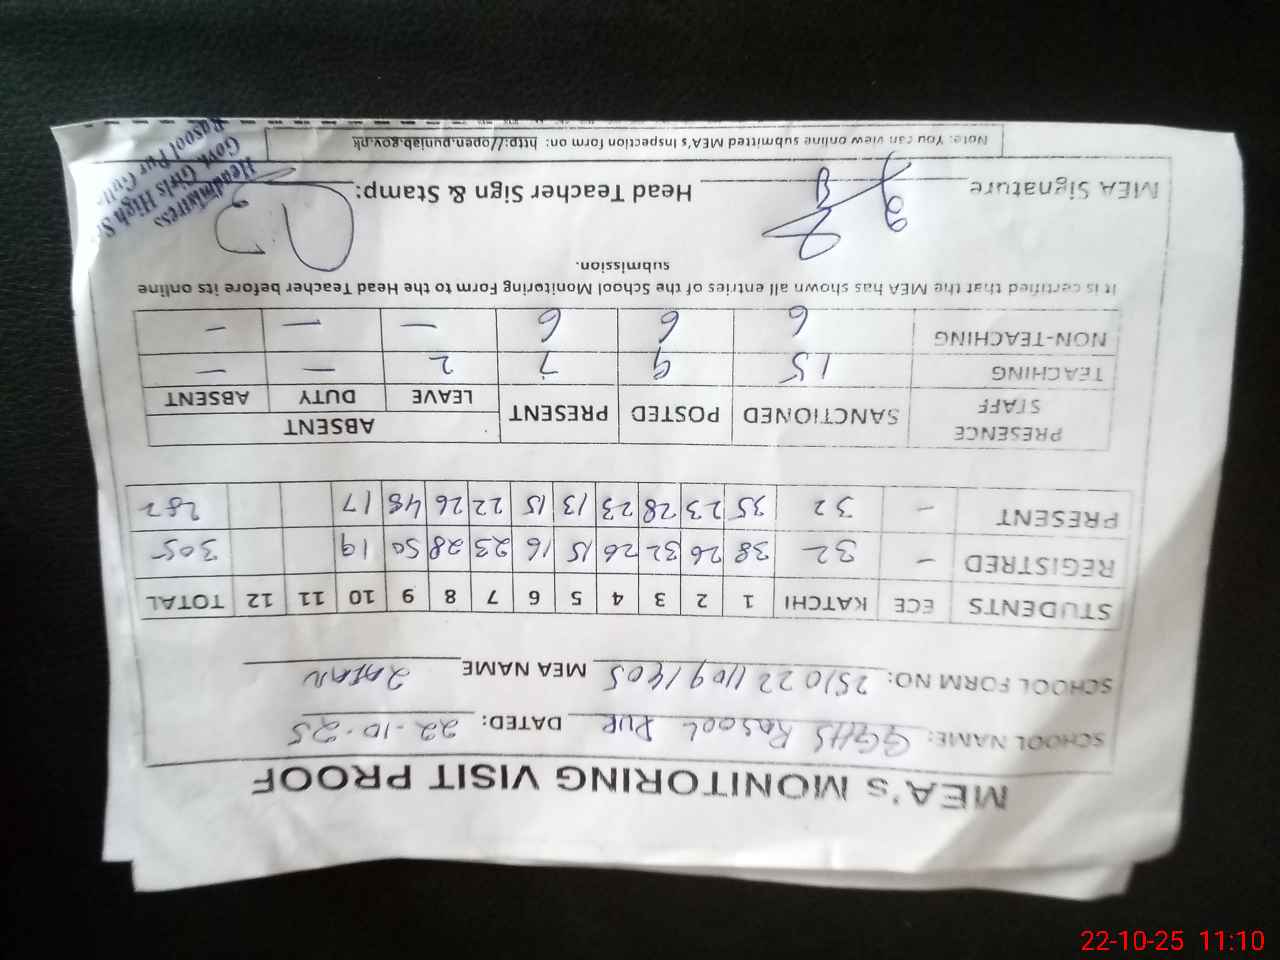 MEA's MONITORING VISIT PROOF
SCHOOL NAME: GGHS Rasool Pur DATED: 22-10-25
SCHOOL FORM NO: 251022 1109 1405 MEA NAME
STUDENTS ECE KATCHI 1 2 3 4 5 6 7 8 9 10 11 12 TOTAL
REGISTRED - 32 38 26 32 26 15 16 23 28 50 19 305
PRESENT - 32 35 23 28 23 13 15 22 26 48 17 282
PRESENCE STAFF SANCTIONED POSTED PRESENT ABSENT
LEAVE DUTY ABSENT
TEACHING 15 9 7 2 - -
NON-TEACHING 6 6 6 - - -
It is certified that the MEA has shown all entries of the School Monitoring Form to the Head Teacher before its online
submission.
MEA Signature Head Teacher Sign & Stamp:
Headmistress
Govt. Girls High
Rasool Pur
Note: You can view online submitted MEA's Inspection form on: http://open.punjab.gov.pk
22-10-25 11:10